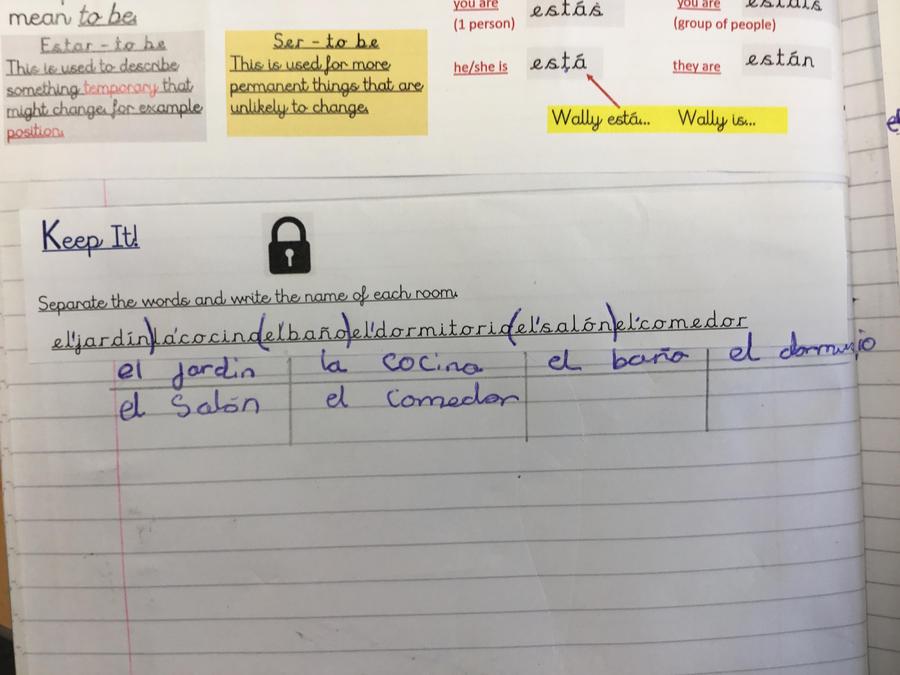 mean to be.
Estar - to be
This is used to describe
something temporary that
might change, for example
position.
Ser - to be
This is used for more
permanent things that are
unlikely to change.
you are
(1 person)
estás
you are
(group of people)
estáis
he/she is
está
they are
están
Wally está... Wally is...
Keep It!
Separate the words and write the name of each room.
el'jardín)la'cocina(el'baño)el'dormitorio(el'salón)el'comedor
el jardin la cocina el baño
el Salón el Comedor